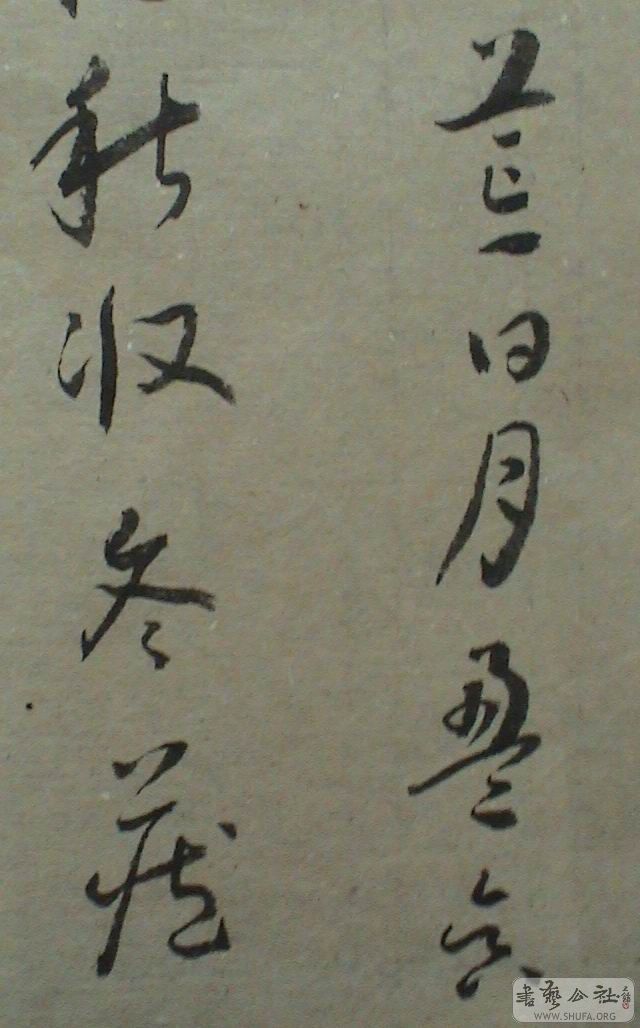 荒日月盈昃
秋收冬藏
書藝公社
WWW.SHUFA.ORG